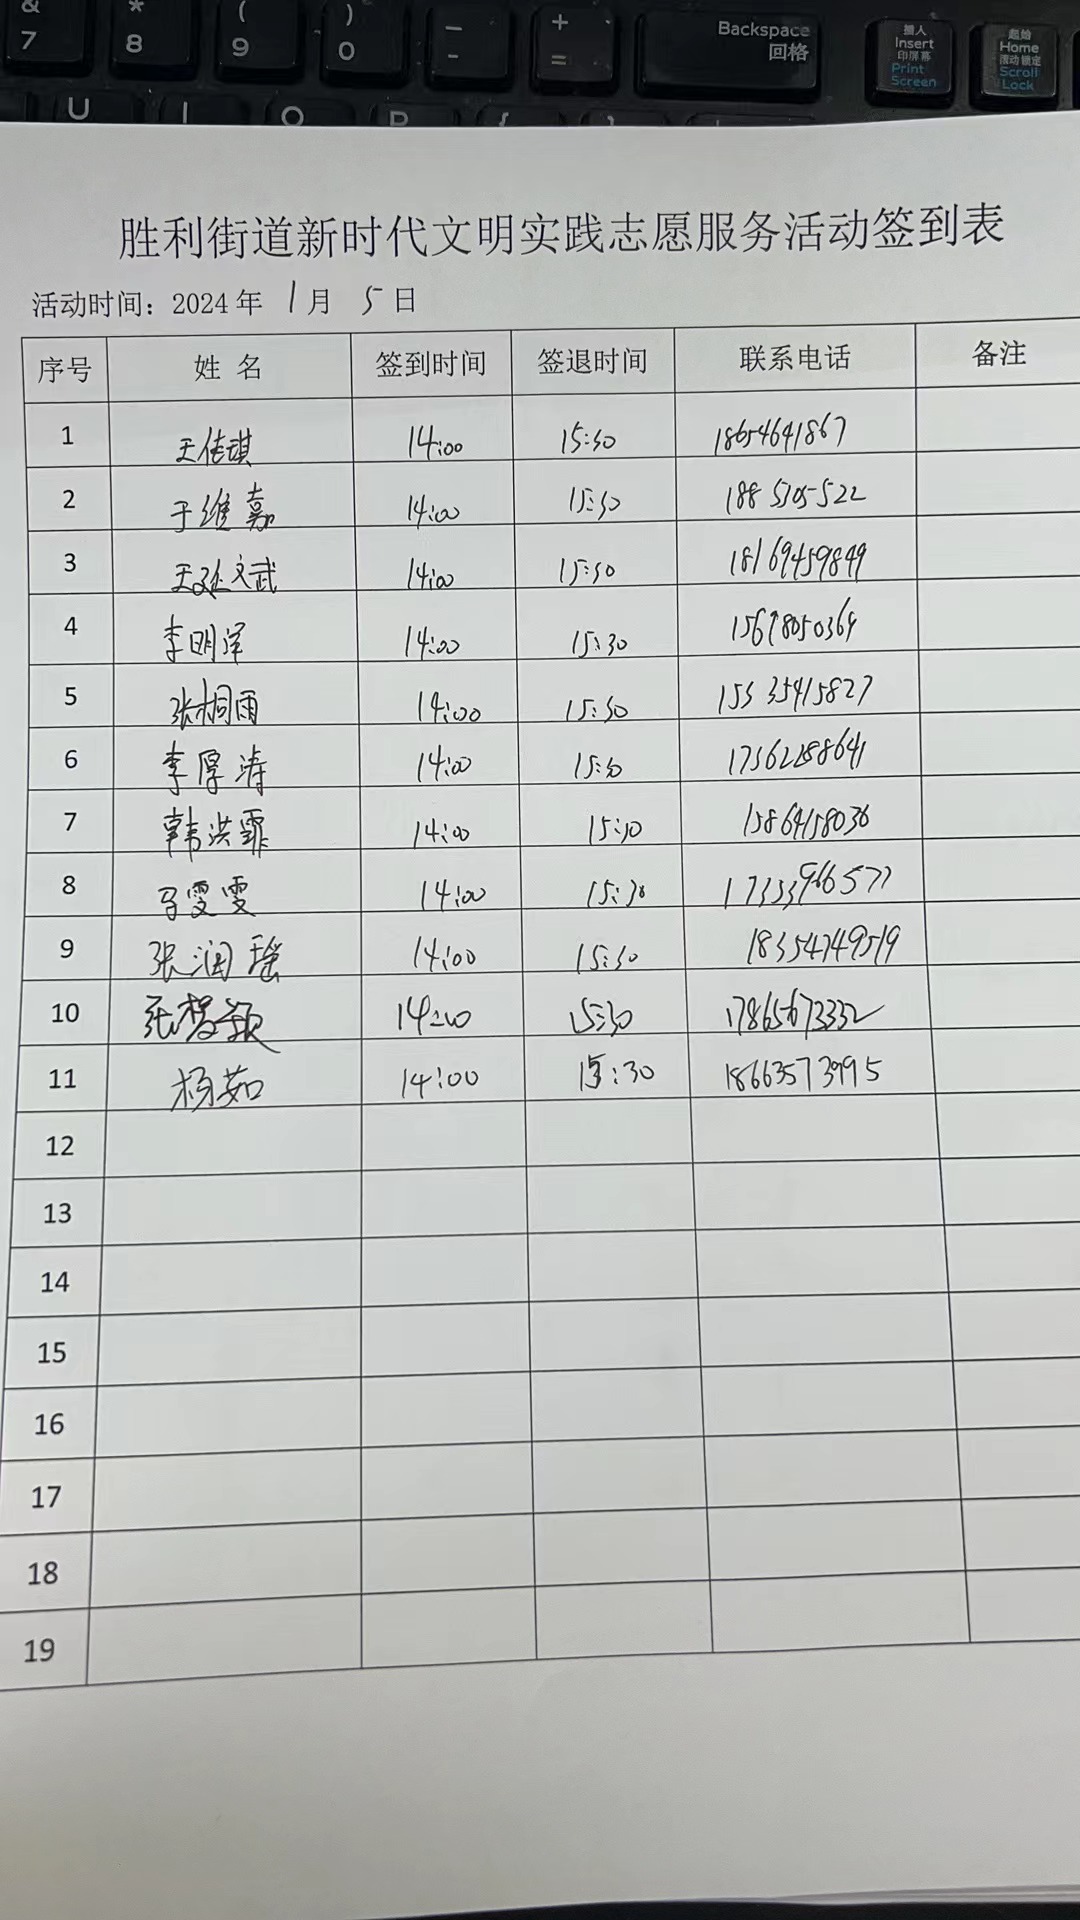 &
7
*
8
(
9
)
0
—
-
+
=
Backspace
回格
插入
Insert
印屏幕
Print
Screen
起始
Home
滚动锁定
Scroll
Lock
U I O P { }
胜利街道新时代文明实践志愿服务活动签到表
活动时间：2024年 1月 5日
序号 姓 名 签到时间 签退时间 联系电话 备注
1 王佳琪 14:00 15:30 18654641867
2 于维嘉 14:00 15:30 188 5105522
3 王文武 14:00 15:30 18169459849
4 李明泽 14:00 15:30
5 张桐雨 14:00 15:30 15335415827
6 李厚涛 14:00 15:30 17562288641
7 韩洪霏 14:00 15:30 15864158036
8 马雯雯 14:00 15:30 17333966577
9 张润瑶 14:00 15:30 18354749519
10 14:00 15:30 17865673332
11 杨茹 14:00 15:30 18663573995
12
13
14
15
16
17
18
19